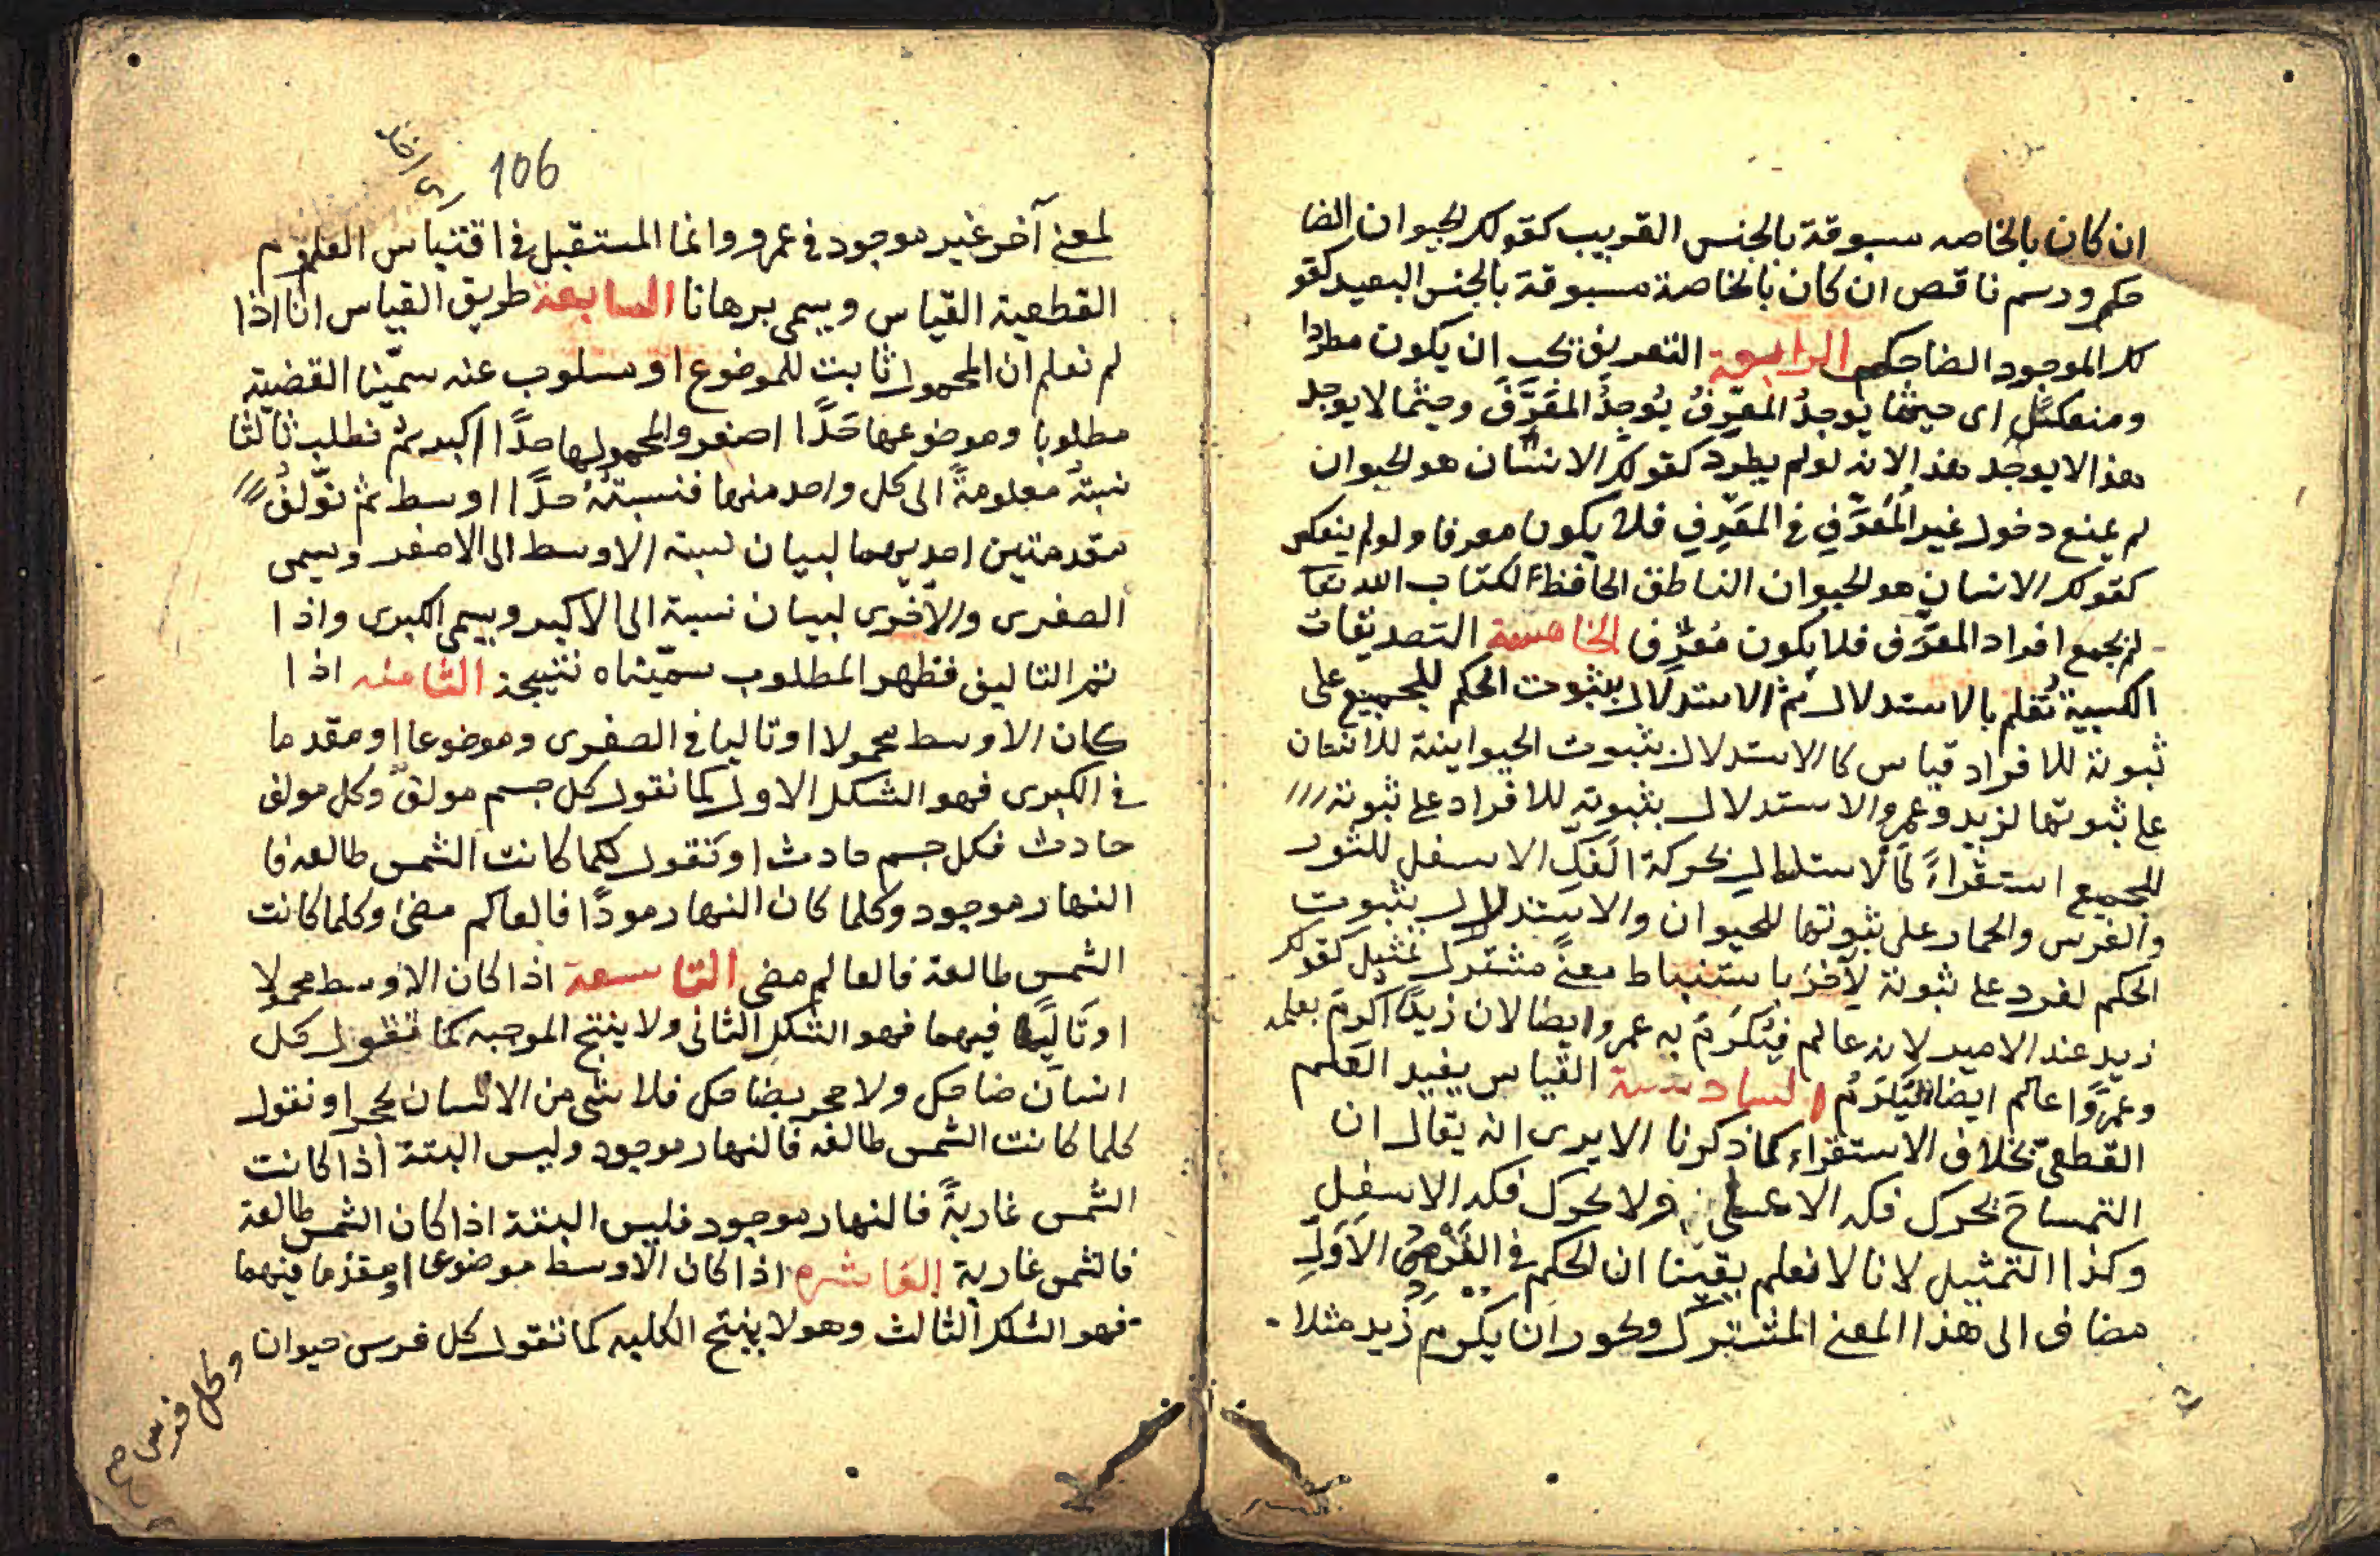 ان كان بالخاصه سبوقة بالجنس القريب كقولك الحيوان الضا
حكم ورسم ناقص ان كان بالخاصة مسبوقة بالجنس البعيد كقو
لك الموجود الضاحكم الرابعة التعريف يجب ان يكون مطردا
ومنعكسًا اى حيثما يوجدُ المعرِّفُ يُوجدُ المعَرَّفَ وحيثما لا يوجد
هذا لا يوجد هذا لانه لو لم يطرد كقولك الانسان هو الحيوان
لم يمنع دخول غير المُعَرَّفِ في المعَرِّفِ فلا يكون معرفا ولو لم ينعكس
كقولك الانسان هو الحيوان الناطق الحافظ لكتاب الله تعا
لم يجمع افراد المعرَّف فلا يكون مُعرِّف الخامسة التصديقات
الكسبية تُعلم بالاستدلال ثم الاستدلال بثبوت الحكم للجميع على
ثبوتة للافراد قياس كالاستدلال بثبوت الحيوانية للانسان
على ثبوتها لزيد وعمرو والاستدلال بثبوته للافراد على ثبوته
للجميع استقراءً كالاستدلال بحركة الفَكِّ الاسفل للثور
والفرس والحمار على ثبوتها للحيوان والاستدلال بثبوت
الحكم لفرد على ثبوتة لآخر باستنباط معنىً مشترك تمثيل كقولك
زيد عند الامير لانه عالم فيُكرَمُ به عمرو ايضا لان زيدًا اكرم بعلمه
وعمروًا عالم ايضا فيُكرَمُ السادسة القياس يفيد العلم
القطعىّ بخلاف الاستقراء كما ذكرنا الا يرى انه يقال ان
التمساح يحرك فكه الاعلى ولا يحرك فكه الاسفل
وكذا التمثيل لانا لا نعلم يقينا ان الحكم في الفرض الاَوّلِ
مضاف الى هذا المعنى المشترك ويجوز ان يكرم زيد مثلا
106
لمعنى آخر غير موجود في عمرو وانما المستقبل في اقتباس العلوم
القطعية القياس ويسمى برهانا السابعة طريق القياس انا اذا
لم نعلم ان المحمول ثابت للموضوع او مسلوب عنه سمّينا القضية
مطلوبا وموضوعها حَدًّا اصغر والمحمولها حدًّا اكبر ثم نطلب ثالثا
نسبتُهُ معلومةً الى كل واحد منهما فنسبتُهُ حدًّا اوسط ثم نؤَلّفُ
مقدمتين احديهما لبيان نسبة الاوسط الى الاصغر ويسمى
الصغرى والاخرى لبيان نسبة الى الاكبر ويسمى الكبرى واذا
تمر التاليف فظهر المطلوب سمّيناه نتيجة الثامنه اذا
كان الاوسط محمولا او تاليا في الصغرى وموضوعا او مقدما
في الكبرى فهو الشكل الاول كما نقول كل جسم مولف وكل مولف
حادث فكل جسم حادث او نقول كلما كانت الشمس طالعه فا
النهار موجود وكلما كان النهار مودًا فالعالم مضئ وكلما كانت
الشمس طالعة فالعالم مضى التاسعة اذا كان الاوسط محمولا
او تَاليًا فيهما فهو الشكل الثانى ولا ينتج الموجبه كما تقول كل
انسان ضاحك ولا حجر بضاحك فلا شى من الانسان بحجر او نقول
كلما كانت الشمس طالعه فالنهار موجود وليس البتة اذا كانت
الشمس غاربةً فالنهار موجود فليس البتة اذا كان الشمس طالعة
فالشمس غاربة العاشره اذا كان الاوسط موضوعا او مقدما فيهما
فهو الشكل الثالث وهو لا ينتج الكليه كما تقول كل فرس حيوان
وكل فرس